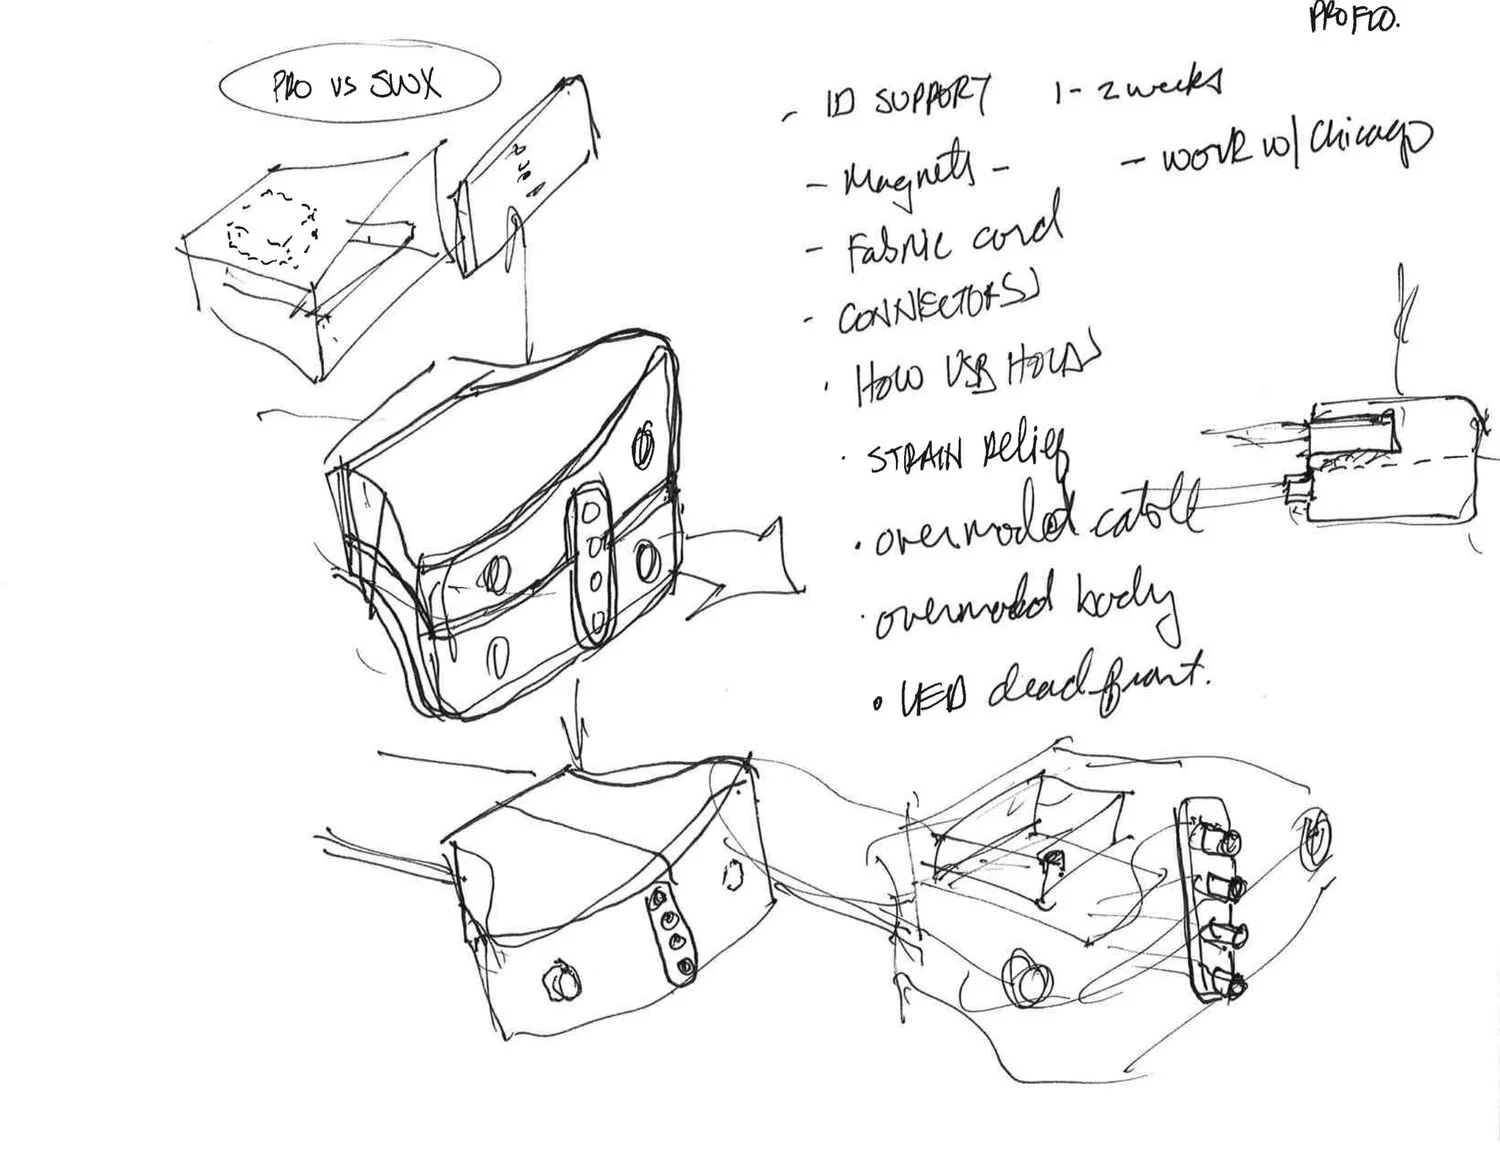 PRO FLO.
PRO VS SWX
- ID SUPPORT 1-2 weeks
- Magnets - - work w/ Chicago
- Fabric cord
- CONNECTORS
· HOW USB HOLDS
· STRAIN Relief
· overmolded
· overmolded body
• LED deadfront.